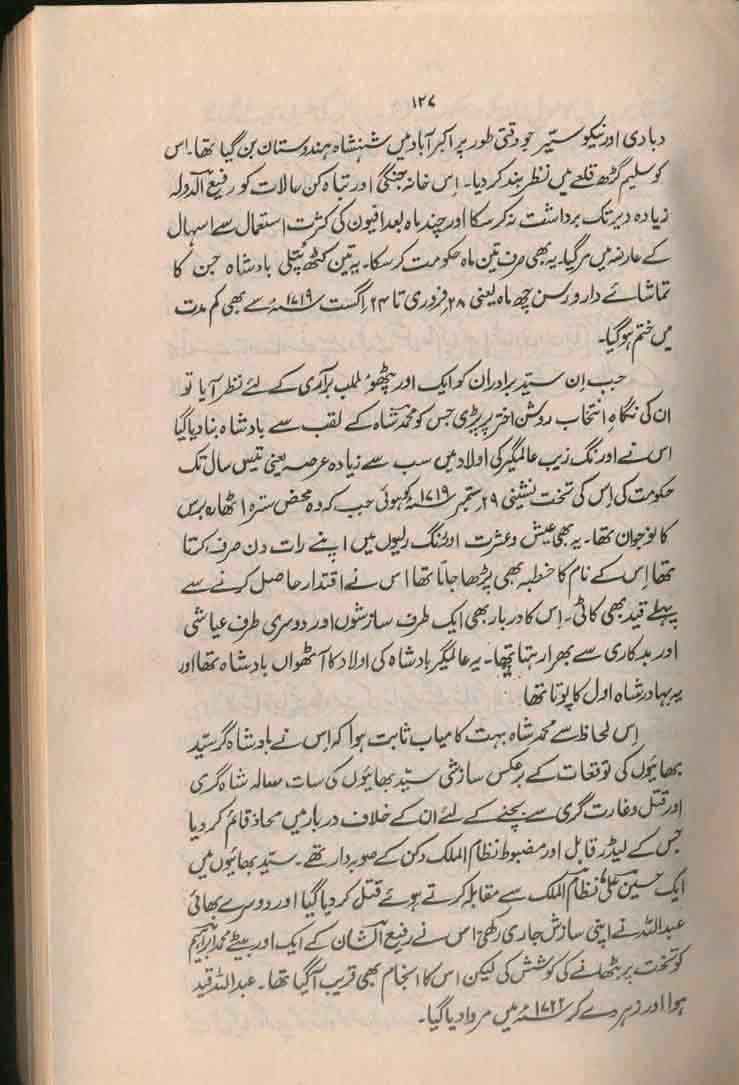 ۱۲۷
دبا دی اور نیکو سیّر جو وقتی طور پر اکبر آباد میں شہنشاہ ہندوستان بن گیا تھا۔ اس
کو سلیم گڑھ قلعے میں نظر بند کر دیا۔ اِس خانہ جنگی اور تباہ کن حالات کو رفیع الدولہ
زیادہ دیر تک برداشت نہ کر سکا اور چند ماہ بعد افیون کی کثرت استعمال سے اسہال
کے عارضہ میں مر گیا۔ یہ بھی صرف تین ماہ حکومت کر سکا۔ یہ تین کٹھ پُتلی بادشاہ جن کا
تماشائے دار و رسن چھ ماہ یعنی ۲۸ فروری تا ۲۴ اگست ۱۷۱۹ء سے بھی کم مدت
میں ختم ہو گیا۔
جب اِن سیّد برادران کو ایک اور پٹھو مطلب برآری کے لئے نظر آیا تو
ان کی نگاہِ انتخاب روشن اختر پر پڑی جس کو محمد شاہ کے لقب سے بادشاہ بنا دیا گیا
اس نے اورنگ زیب عالمگیر کی اولاد میں سب سے زیادہ عرصہ یعنی تیس سال تک
حکومت کی اِس کی تخت نشینی ۲۹ ستمبر ۱۷۱۹ء کو ہوئی جب کہ وہ محض سترہ اٹھارہ برس
کا نوجوان تھا۔ یہ بھی عیش و عشرت اور رنگ رلیوں میں اپنے رات دن صرف کرتا
تھا اِس کے نام کا خطبہ بھی پڑھا جاتا تھا اس نے اقتدار حاصل کرنے سے
پہلے قید بھی کاٹی۔ اِس کا دربار بھی ایک طرف سازشوں اور دوسری طرف عیاشی
اور بدکاری سے بھرا رہتا تھا۔ یہ عالمگیر بادشاہ کی اولاد کا آٹھواں بادشاہ تھا اور
یہ بہادر شاہ اول کا پوتا تھا
اِس لحاظ سے محمد شاہ بہت کامیاب ثابت ہوا کہ اِس نے بادشاہ گر سیّد
بھائیوں کی توقعات کے برعکس سازشی سیّد بھائیوں کی سات سالہ شاہ گری
اور قتل و غارت گری سے بچنے کے لئے ان کے خلاف دربار میں محاذ قائم کر دیا
جس کے لیڈر قابل اور مضبوط نظام الملک دکن کے صوبہ دار تھے۔ سیّد بھائیوں میں
ایک حسین علی نظام الملک سے مقابلہ کرتے ہوئے قتل کر دیا گیا اور دوسرے بھائی
عبداللہ نے اپنی سازش جاری رکھی اس نے رفیع الشان کے ایک اور بیٹے محمد ابراہیم
کو تخت پر بٹھانے کی کوشش کی لیکن اس کا انجام بھی قریب آ گیا تھا۔ عبداللہ قید
ہوا اور زہر دے کر ۱۷۲۲ء میں مروا دیا گیا۔